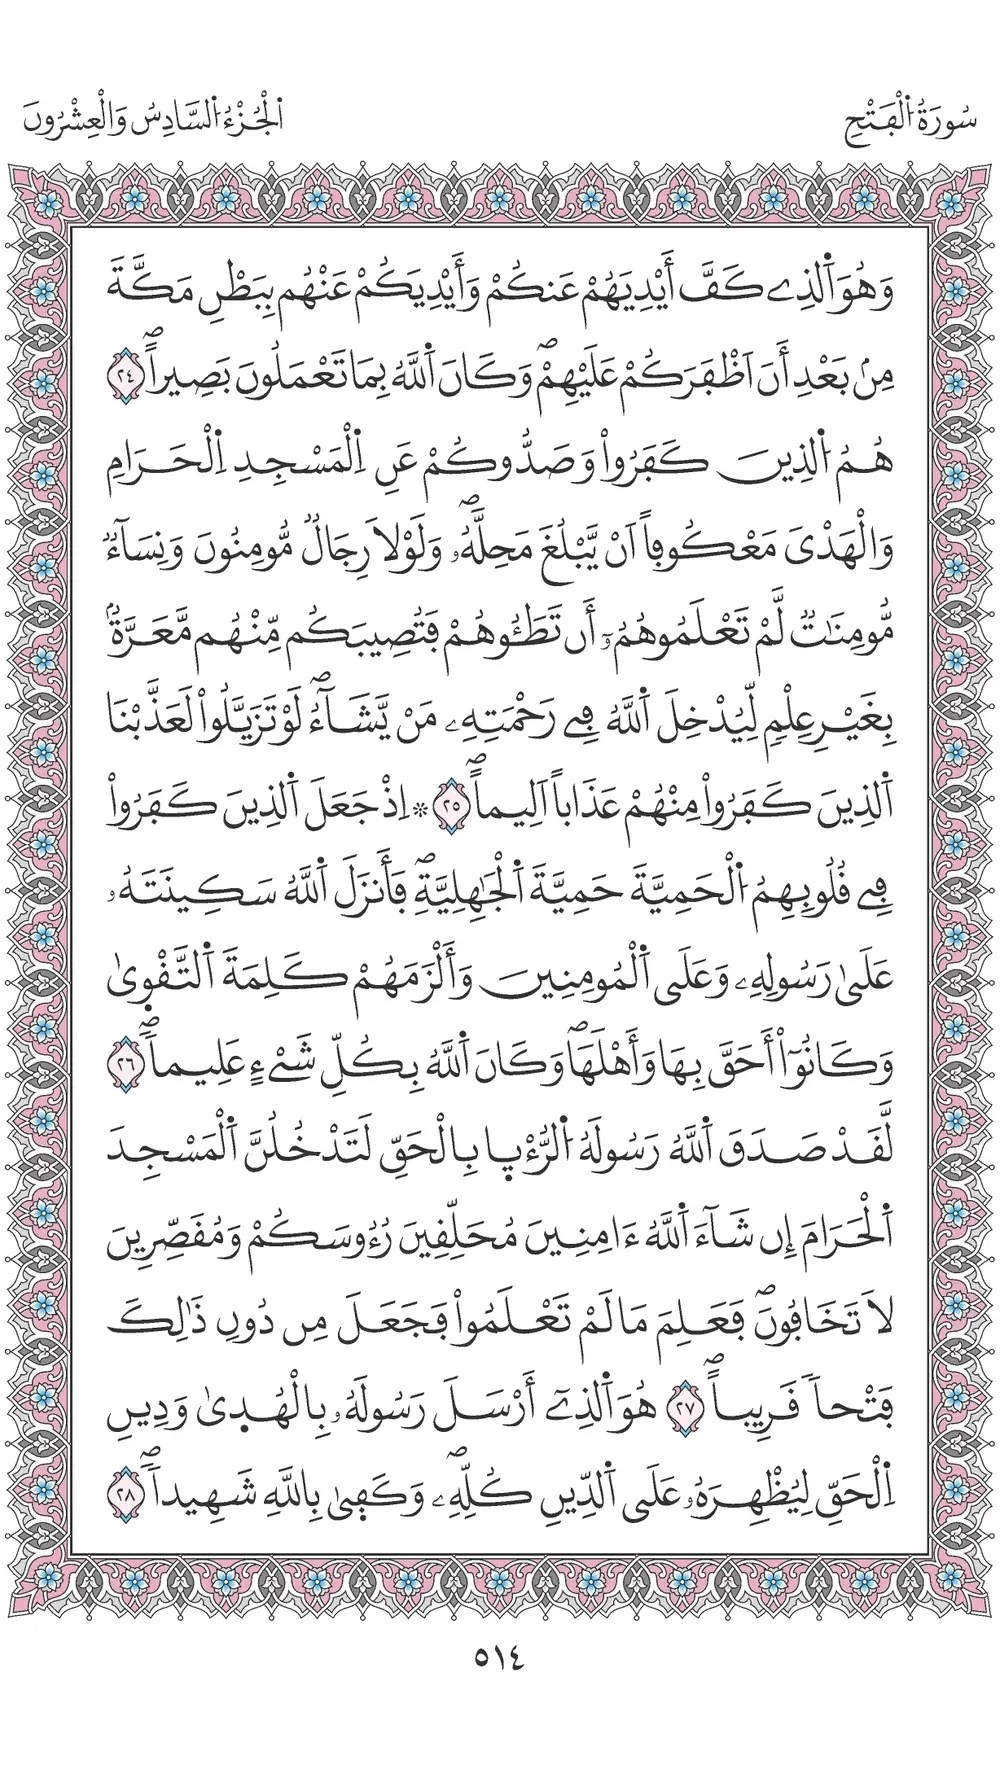 سُورَةُ اُ۬لْفَتْحِ
اَ۬لْجُزْءُ اُ۬لسَّادِسُ وَالْعِشْرُونَ
وَهُوَ اَ۬لذِے كَفَّ أَيْدِيَهُمْ عَنكُمْ وَأَيْدِيَكُمْ عَنْهُم بِبَطْنِ مَكَّةَ
مِنۢ بَعْدِ أَنَ اَظْفَرَكُمْ عَلَيْهِمْۖ وَكَانَ اَ۬للَّهُ بِمَا تَعْمَلُونَ بَصِيراًۖ ٢٤
هُمُ اُ۬لذِينَ كَفَرُواْ وَصَدُّوكُمْ عَنِ اِ۬لْمَسْجِدِ اِ۬لْحَرَامِ
وَالْهَدْىَ مَعْكُوفاً اَنْ يَّبْلُغَ مَحِلَّهُۥۖ وَلَوْلاَ رِجَالٞ مُّومِنُونَ وَنِسَآءٞ
مُّومِنَٰتٞ لَّمْ تَعْلَمُوهُمُۥٓ أَن تَطَـُٔوهُمْ فَتُصِيبَكُم مِّنْهُم مَّعَرَّةُۢ
بِغَيْرِ عِلْمٖ لِّيُدْخِلَ اَ۬للَّهُ فِے رَحْمَتِهِۦ مَنْ يَّشَآءُۖ لَوْ تَزَيَّلُواْ لَعَذَّبْنَا
اَ۬لذِينَ كَفَرُواْ مِنْهُمْ عَذَاباً اَلِيماًۖ ٢٥ * اِذْ جَعَلَ اَ۬لذِينَ كَفَرُواْ
فِے قُلُوبِهِمُ اُ۬لْحَمِيَّةَ حَمِيَّةَ اَ۬لْجَٰهِلِيَّةِۖ فَأَنزَلَ اَ۬للَّهُ سَكِينَتَهُۥ
عَلَىٰ رَسُولِهِۦ وَعَلَى اَ۬لْمُومِنِينَ وَأَلْزَمَهُمْ كَلِمَةَ اَ۬لتَّقْوٜىٰ
وَكَانُوٓاْ أَحَقَّ بِهَا وَأَهْلَهَاۖ وَكَانَ اَ۬للَّهُ بِكُلِّ شَےْءٍ عَلِيماًۖ ٢٦
لَّقَدْ صَدَقَ اَ۬للَّهُ رَسُولَهُ اُ۬لرُّءْيٜا بِالْحَقِّ لَتَدْخُلُنَّ اَ۬لْمَسْجِدَ
اَ۬لْحَرَامَ إِن شَآءَ اَ۬للَّهُ ءَامِنِينَ مُحَلِّقِينَ رُءُوسَكُمْ وَمُقَصِّرِينَ
لاَ تَخَافُونَۖ فَعَلِمَ مَا لَمْ تَعْلَمُواْ فَجَعَلَ مِن دُونِ ذَٰلِكَ
فَتْحاٗ قَرِيباًۖ ٢٧ هُوَ اَ۬لذِےٓ أَرْسَلَ رَسُولَهُۥ بِالْهُدٜىٰ وَدِينِ
اِ۬لْحَقِّ لِيُظْهِرَهُۥ عَلَى اَ۬لدِّينِ كُلِّهِۦۖ وَكَفٜىٰ بِاللَّهِ شَهِيداٗۖ ٢٨
٥١٤